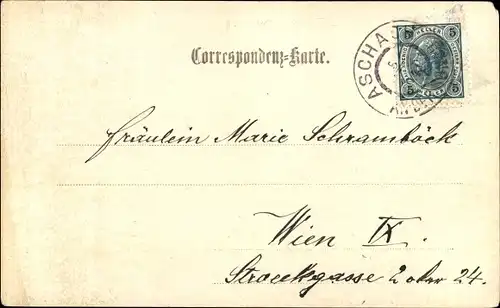 ASCHA
5 5
5 5
Correspondenz-Karte.
Fräulein Marie Schramböck
Wien IX.
2 oder 24.